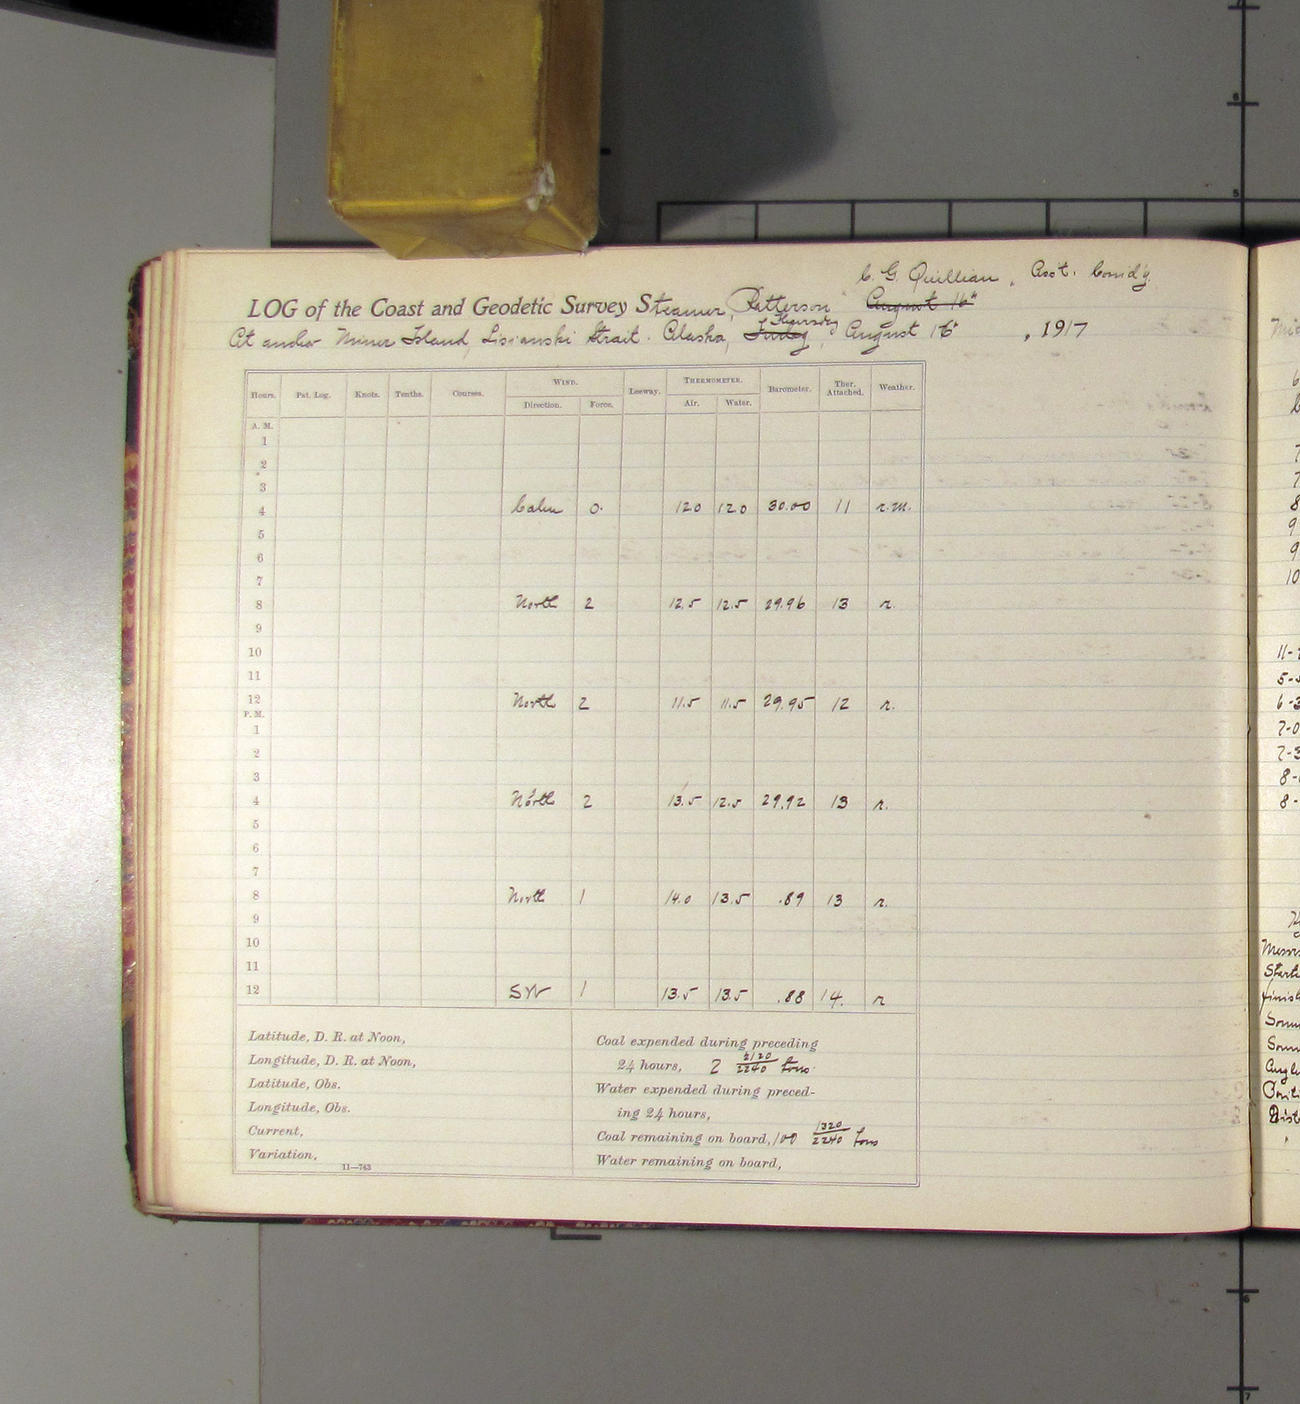 C. G. Quillian, Ass't. Comd'g.
LOG of the Coast and Geodetic Survey Steamer, Patterson August 16"
Thursday
At anchor Miner Island, Lisianski Strait. Alaska, August 16", 1917
Hours. Pat. Log. Knots. Tenths. Courses. WIND. Leeway. THERMOMETER. Barometer. Ther. Attached. Weather.
Direction. Force. Air. Water.
A. M.
1
2
3
4 Calm 0. 12.0 12.0 30.00 11 r.m.
5
6
7
8 North 2 12.5 12.5 29.96 13 r.
9
10
11
12 North 2 11.5 11.5 29.95 12 r.
P. M.
1
2
3
4 North 2 13.5 12.5 29.92 13 r.
5
6
7
8 North 1 14.0 13.5 .89 13 r.
9
10
11
12 SW 1 13.5 13.5 .88 14. r
Latitude, D. R. at Noon,
Longitude, D. R. at Noon,
Latitude, Obs.
Longitude, Obs.
Current,
Variation,
11—743
Coal expended during preceding
24 hours, 2 2120/2240 tons.
Water expended during preced-
ing 24 hours,
Coal remaining on board, 100 1320/2240 tons
Water remaining on board,
7
8
9
9
10
11-
5-
6-3
7-0
7-3
8-
8-
5
6
7